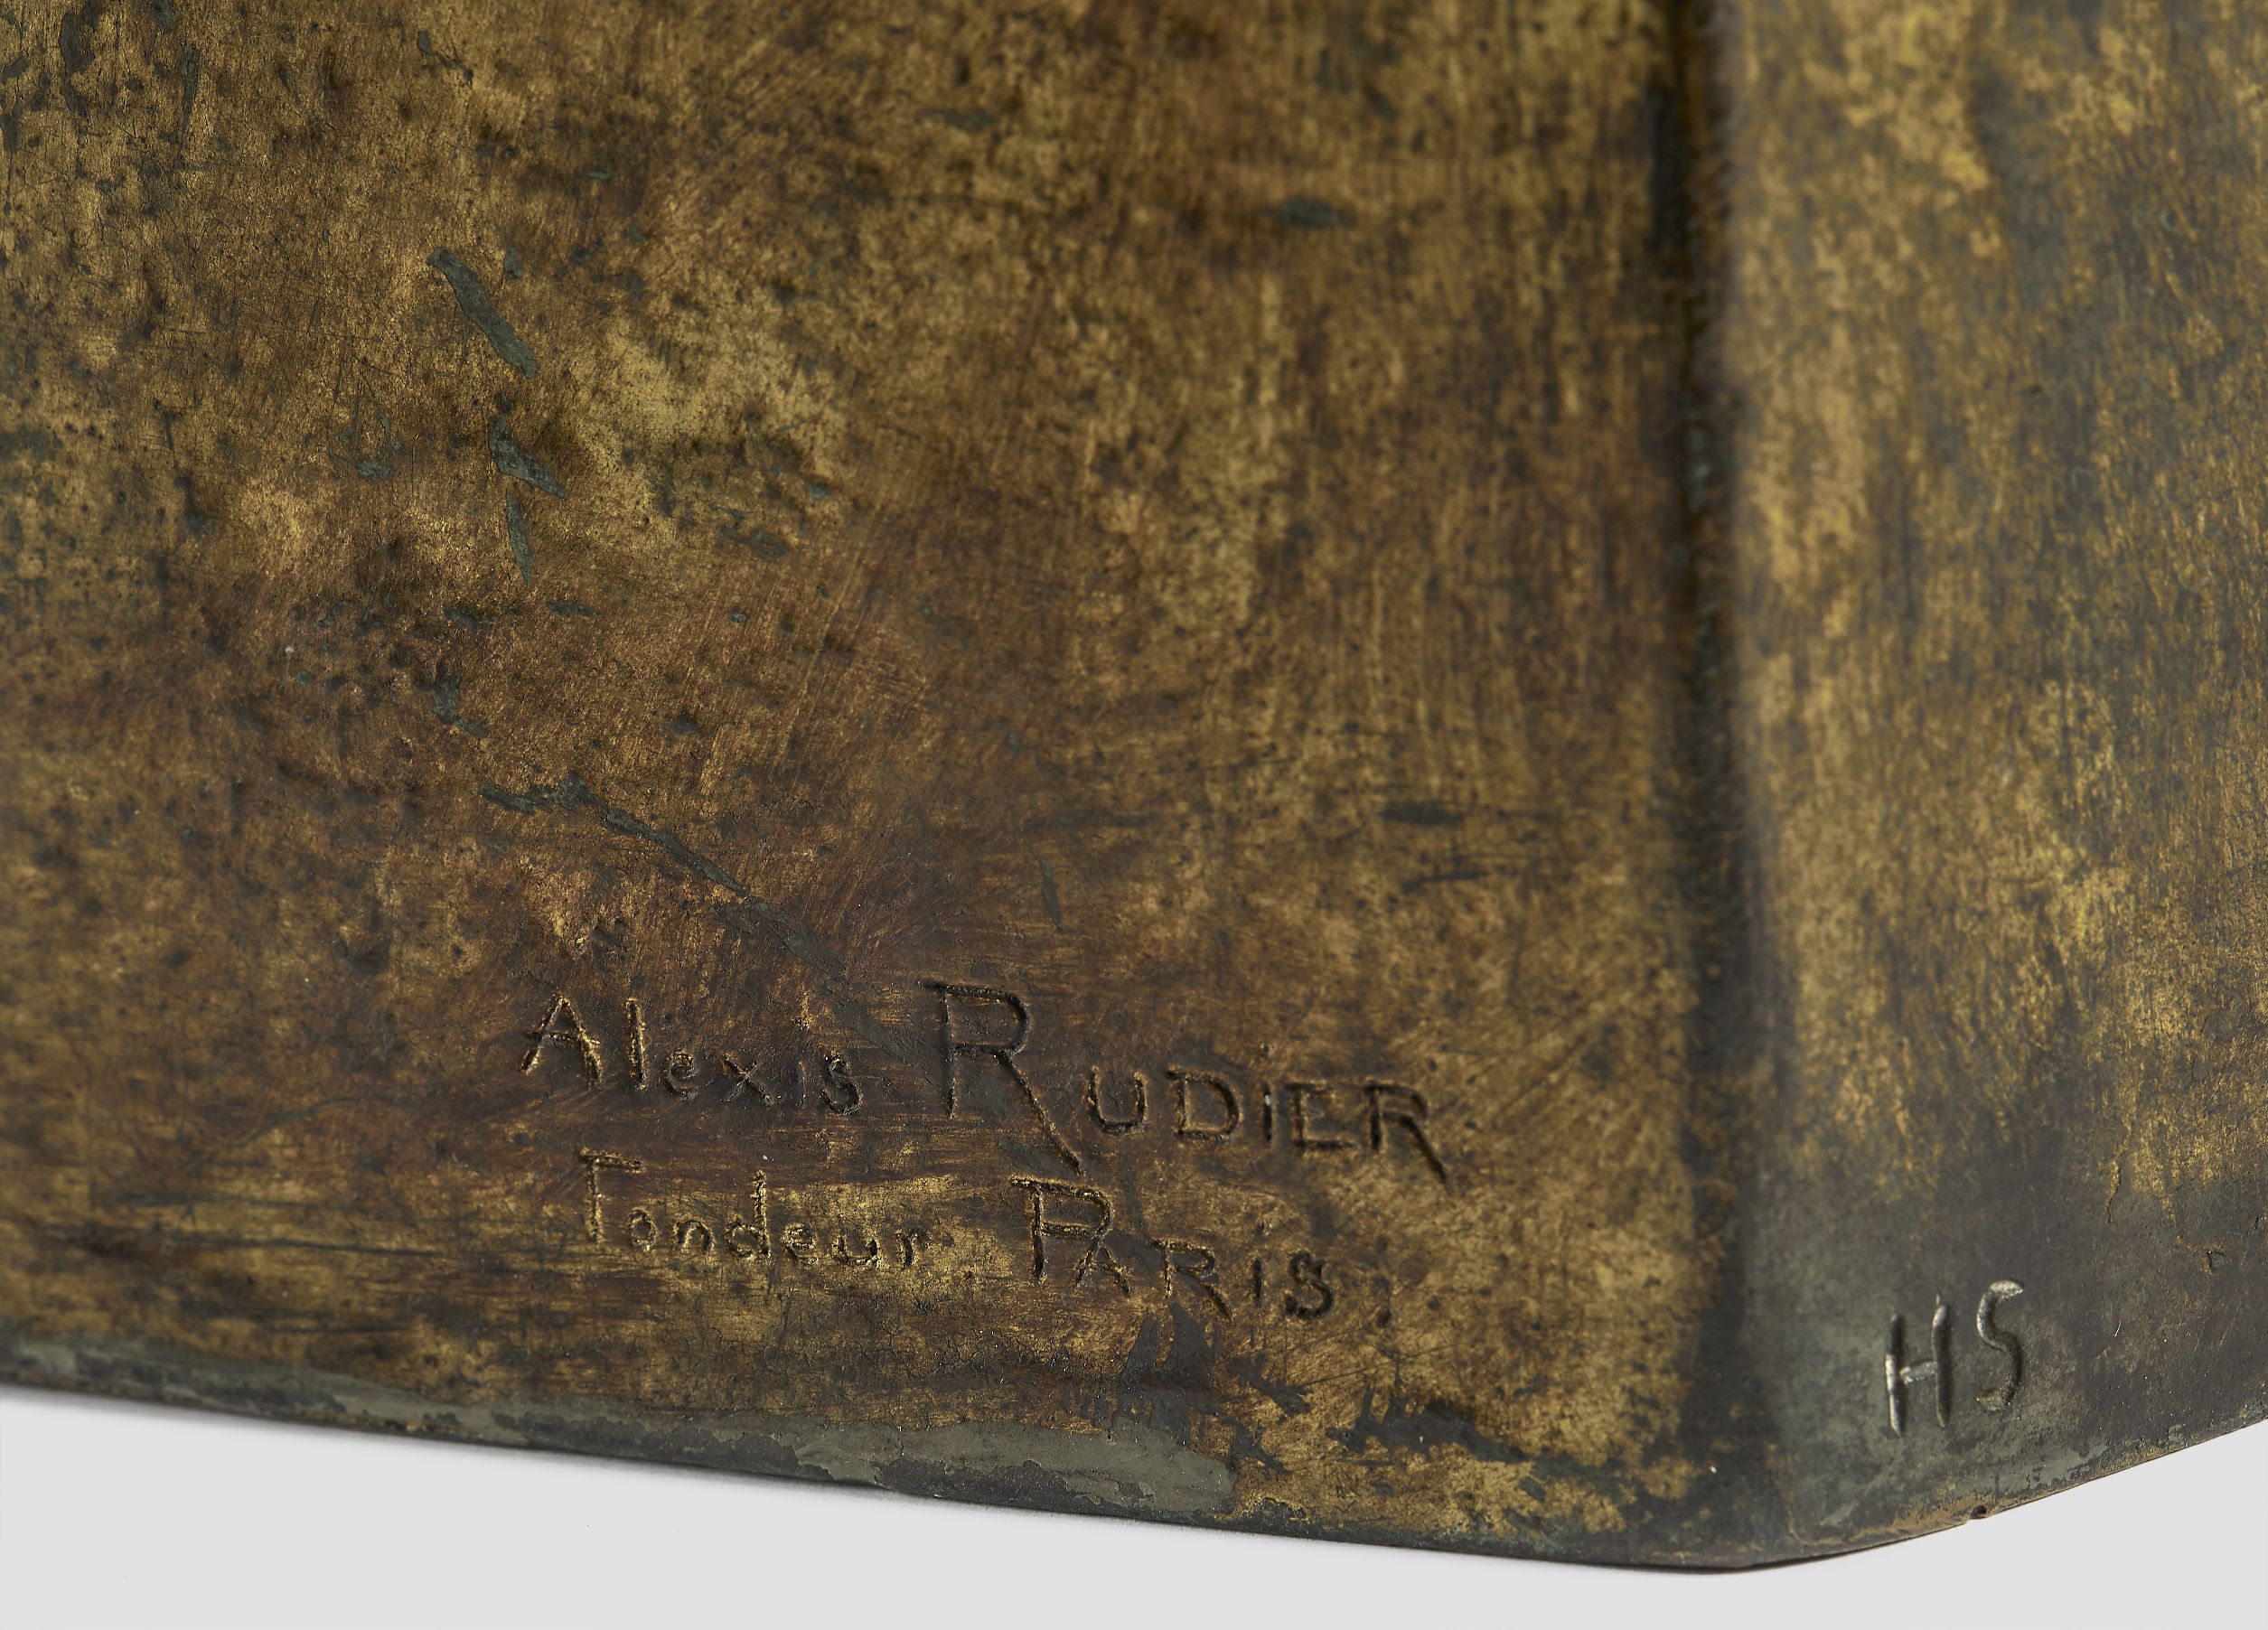 Alexis RUDiER
Fondeur. PARiS.
HS